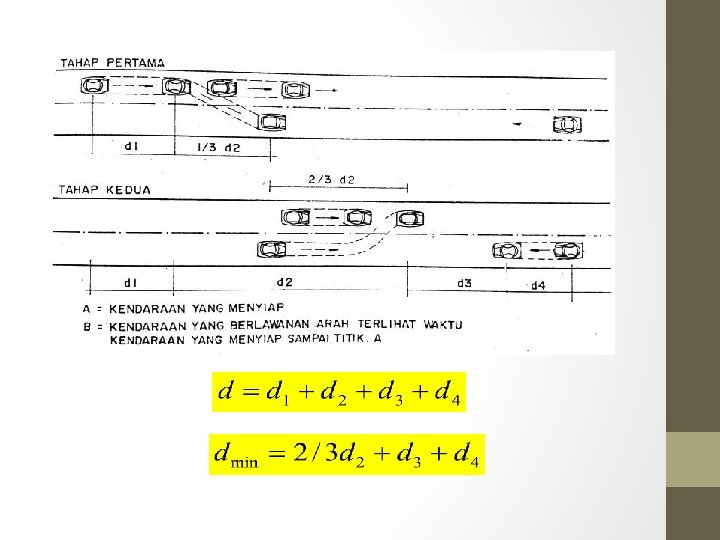 TAHAP PERTAMA
d1
1/3 d2
2/3 d2
TAHAP KEDUA
d1
d2
d3
d4
A = KENDARAAN YANG MENYIAP
B = KENDARAAN YANG BERLAWANAN ARAH TERLIHAT WAKTU
KENDARAAN YANG MENYIAP SAMPAI TITIK. A
d = d₁ + d₂ + d₃ + d₄
dmin = 2/3d₂ + d₃ + d₄